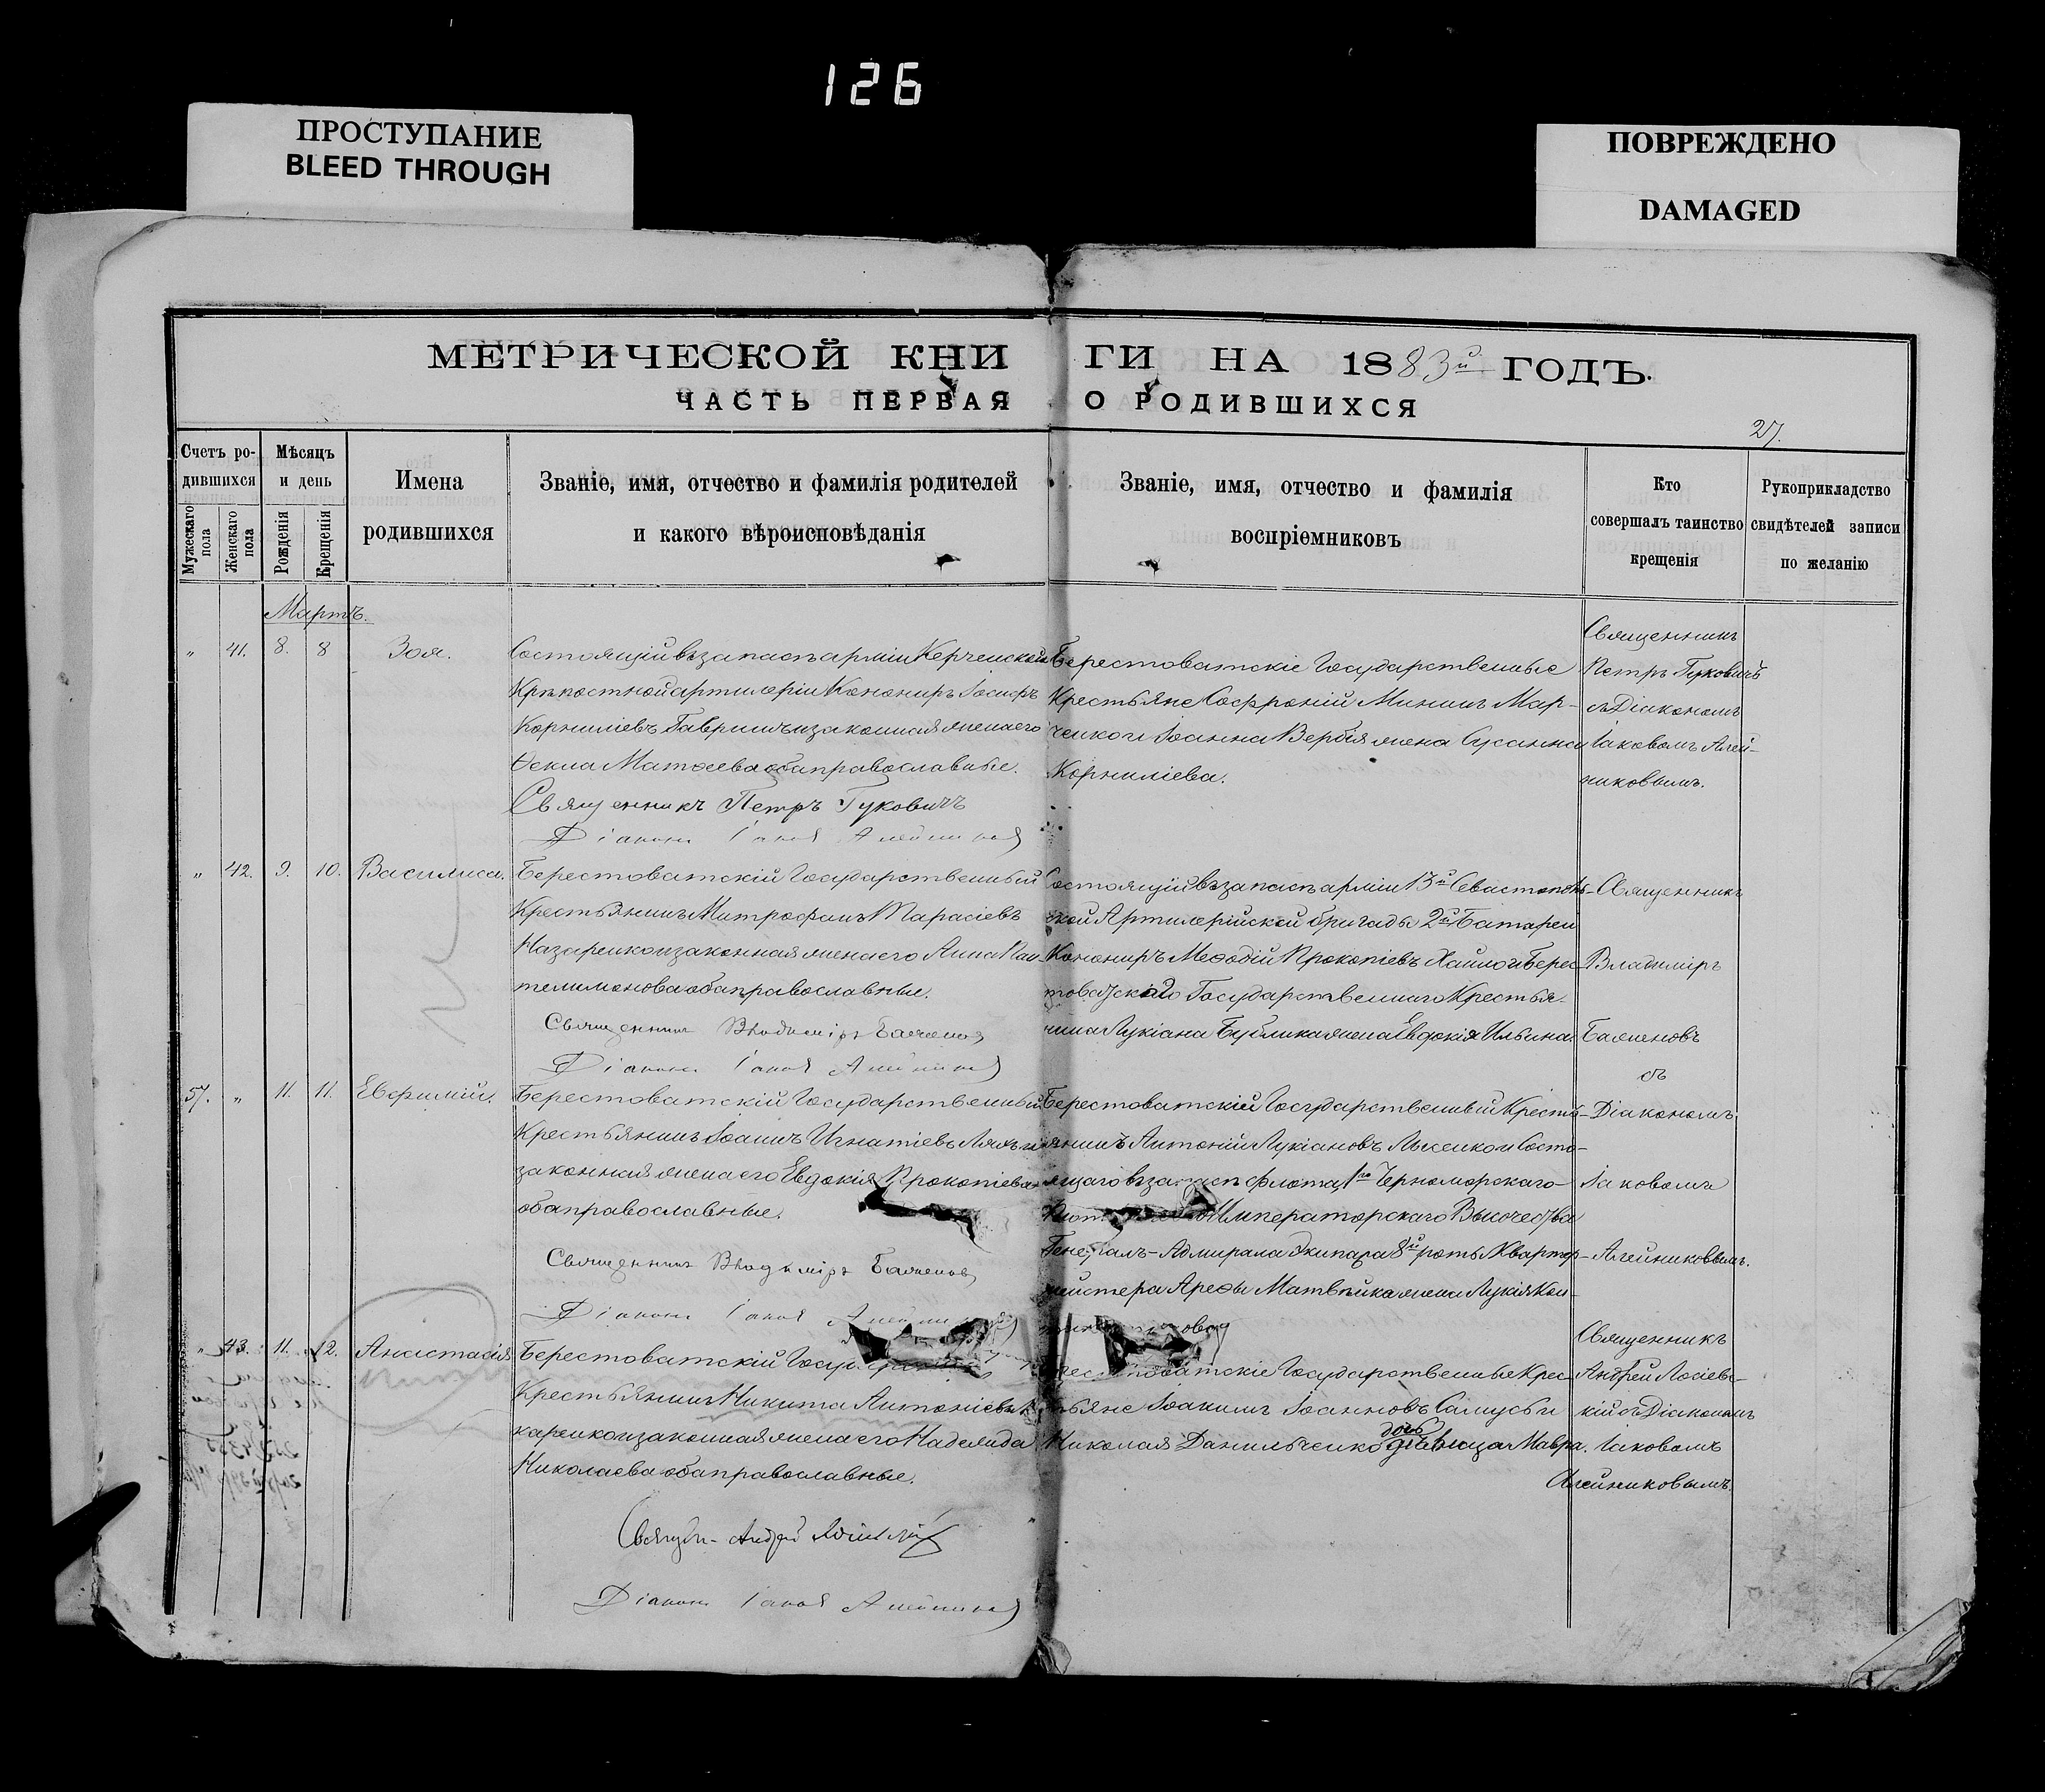 126
ПРОСТУПАНИЕ
BLEED THROUGH
ПОВРЕЖДЕНО
DAMAGED
МЕТРИЧЕСКОЙ КНИГИ НА 1883й ГОДЪ.
ЧАСТЬ ПЕРВАЯ О РОДИВШИХСЯ
27.
Счетъ ро-
дившихся
Мужескаго пола
Женскаго пола
Мѣсяцъ
и день
Рожденія
Крещенія
Имена
родившихся
Званіе, имя, отчество и фамилія родителей
и какого вѣроисповѣданія
Званіе, имя, отчество и фамилія
воспріемниковъ
Кто
совершалъ таинство
крещенія
Рукоприкладство
свидѣтелей записи
по желанію
Мартъ.
„ 41. 8. 8 Зоя.
Состоящій въ запасѣ арміи Керченской
Крѣпостной артилеріи Кононир Іосифъ
Корниліевъ и законная жена его
Ѳекла Матѳеева оба православные.
Священникъ Петръ Гуковичъ
Діаконъ Іаковъ Алейниковъ
Берестоватскіе Государственные
Крестьяне Софроній Мининъ Мар-
ченко и Іоанна Вербія жена Сусанна
Корниліева.
Священникъ
Петръ Гуковичъ
съ Діакономъ
Іаковомъ Алей-
никовымъ.
„ 42. 9. 10. Василиса.
Берестоватскій Государственный
Крестьянинъ Митрофанъ Тарасіевъ
Назаренко и законная жена его Анна Пан-
телимонова оба православные.
Священникъ Владиміръ Баженовъ
Діаконъ Іаковъ Алейниковъ
Состоящій въ запасѣ арміи 13й Севастополь-
ской Артилерійской бригады 2й Батареи
Кононир Меѳодій Прокопіевъ Хайло и Берес-
товатскаго Государственнаго Крестья-
нина Лукіана Бублика жена Евдокія Ильина.
Священникъ
Владиміръ
Баженовъ
съ
Діакономъ
Іаковомъ
Алейниковымъ.
57. „ 11. 11. Евфимій.
Берестоватскій Государственный
Крестьянинъ Іоаннъ Игнатіевъ Ляхъ и
законная жена его Евдокія Прокопіева
оба православные.
Священникъ Владиміръ Баженовъ
Діаконъ Іаковъ Алейниковъ
Берестоватскій Государственный Кресть-
янинъ Антоній Лукіановъ Лысенко и Состо-
ящаго въ запасѣ флота, 1го Черноморскаго
Императорскаго Высочества
Генералъ-Адмирала Экипажа 8й роты Квартир-
мейстера Арефы Матвѣйка жена Лукія
„ 43. 11. 12. Анастасія
Берестоватскій
Крестьянинъ Никита Антоніевъ
и законная жена его Надежда
Николаева оба православные.
Андрей
Діаконъ Іаковъ Алейниковъ
Государственные Крес-
тьяне Іоакимъ Іоанновъ Самусь и
Николая Данильченко дочь дѣвица Мавра.
Священникъ
Андрей Лосіевс-
кій съ Діакономъ
Іаковомъ
Алейниковымъ.